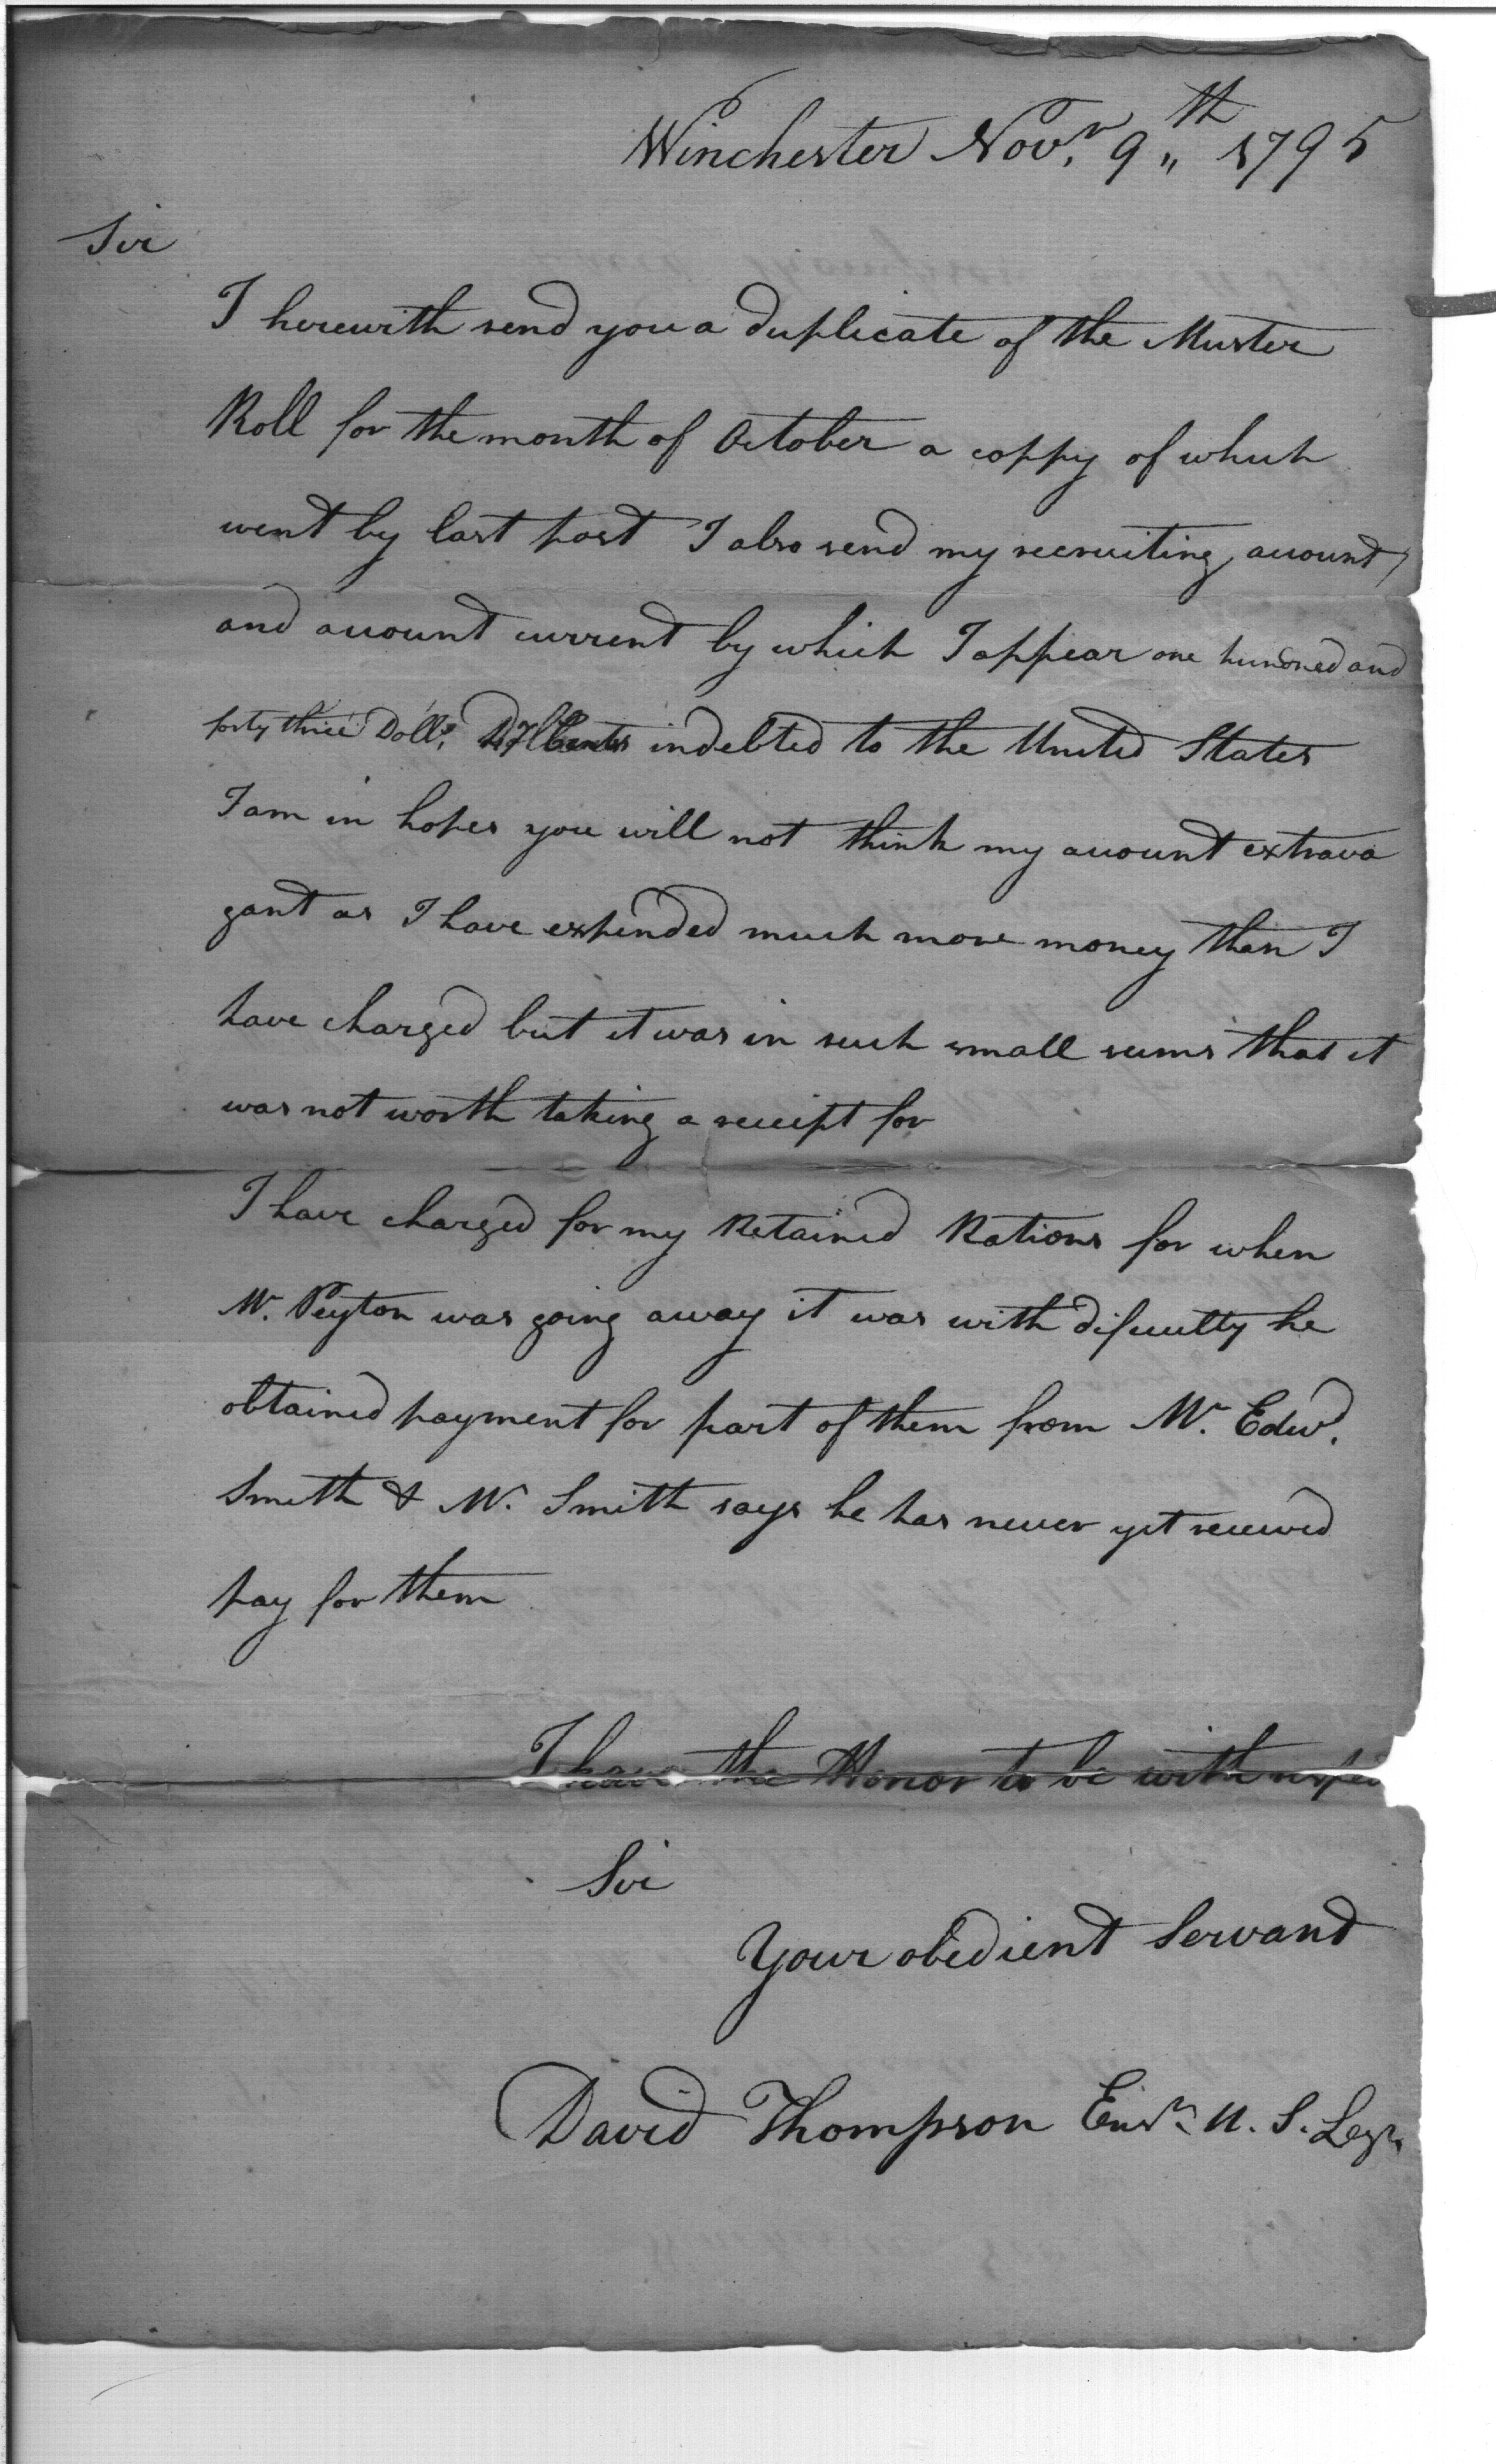 Winchester Novr. 9th 1795
Sir
I herewith send you a duplicate of the Muster
Roll for the month of October a coppy of which
went by last post I also send my recruiting account
and account current by which I appear one hundred and
forty three Dolls. Cents indebted to the United States
I am in hopes you will not think my account extrava
gant as I have expended much more money than I
have charged but it was in such small sums that it
was not worth taking a receipt for
I have charged for my Retained Rations for when
Mr. Peyton was going away it was with dificulty he
obtained payment for part of them from Mr. Edwd.
Smith & Mr. Smith says he has never yet received
pay for them
I have the Honor to be with respe
Sir
Your obedient Servant
David Thompson Ensn. U. S. Legn